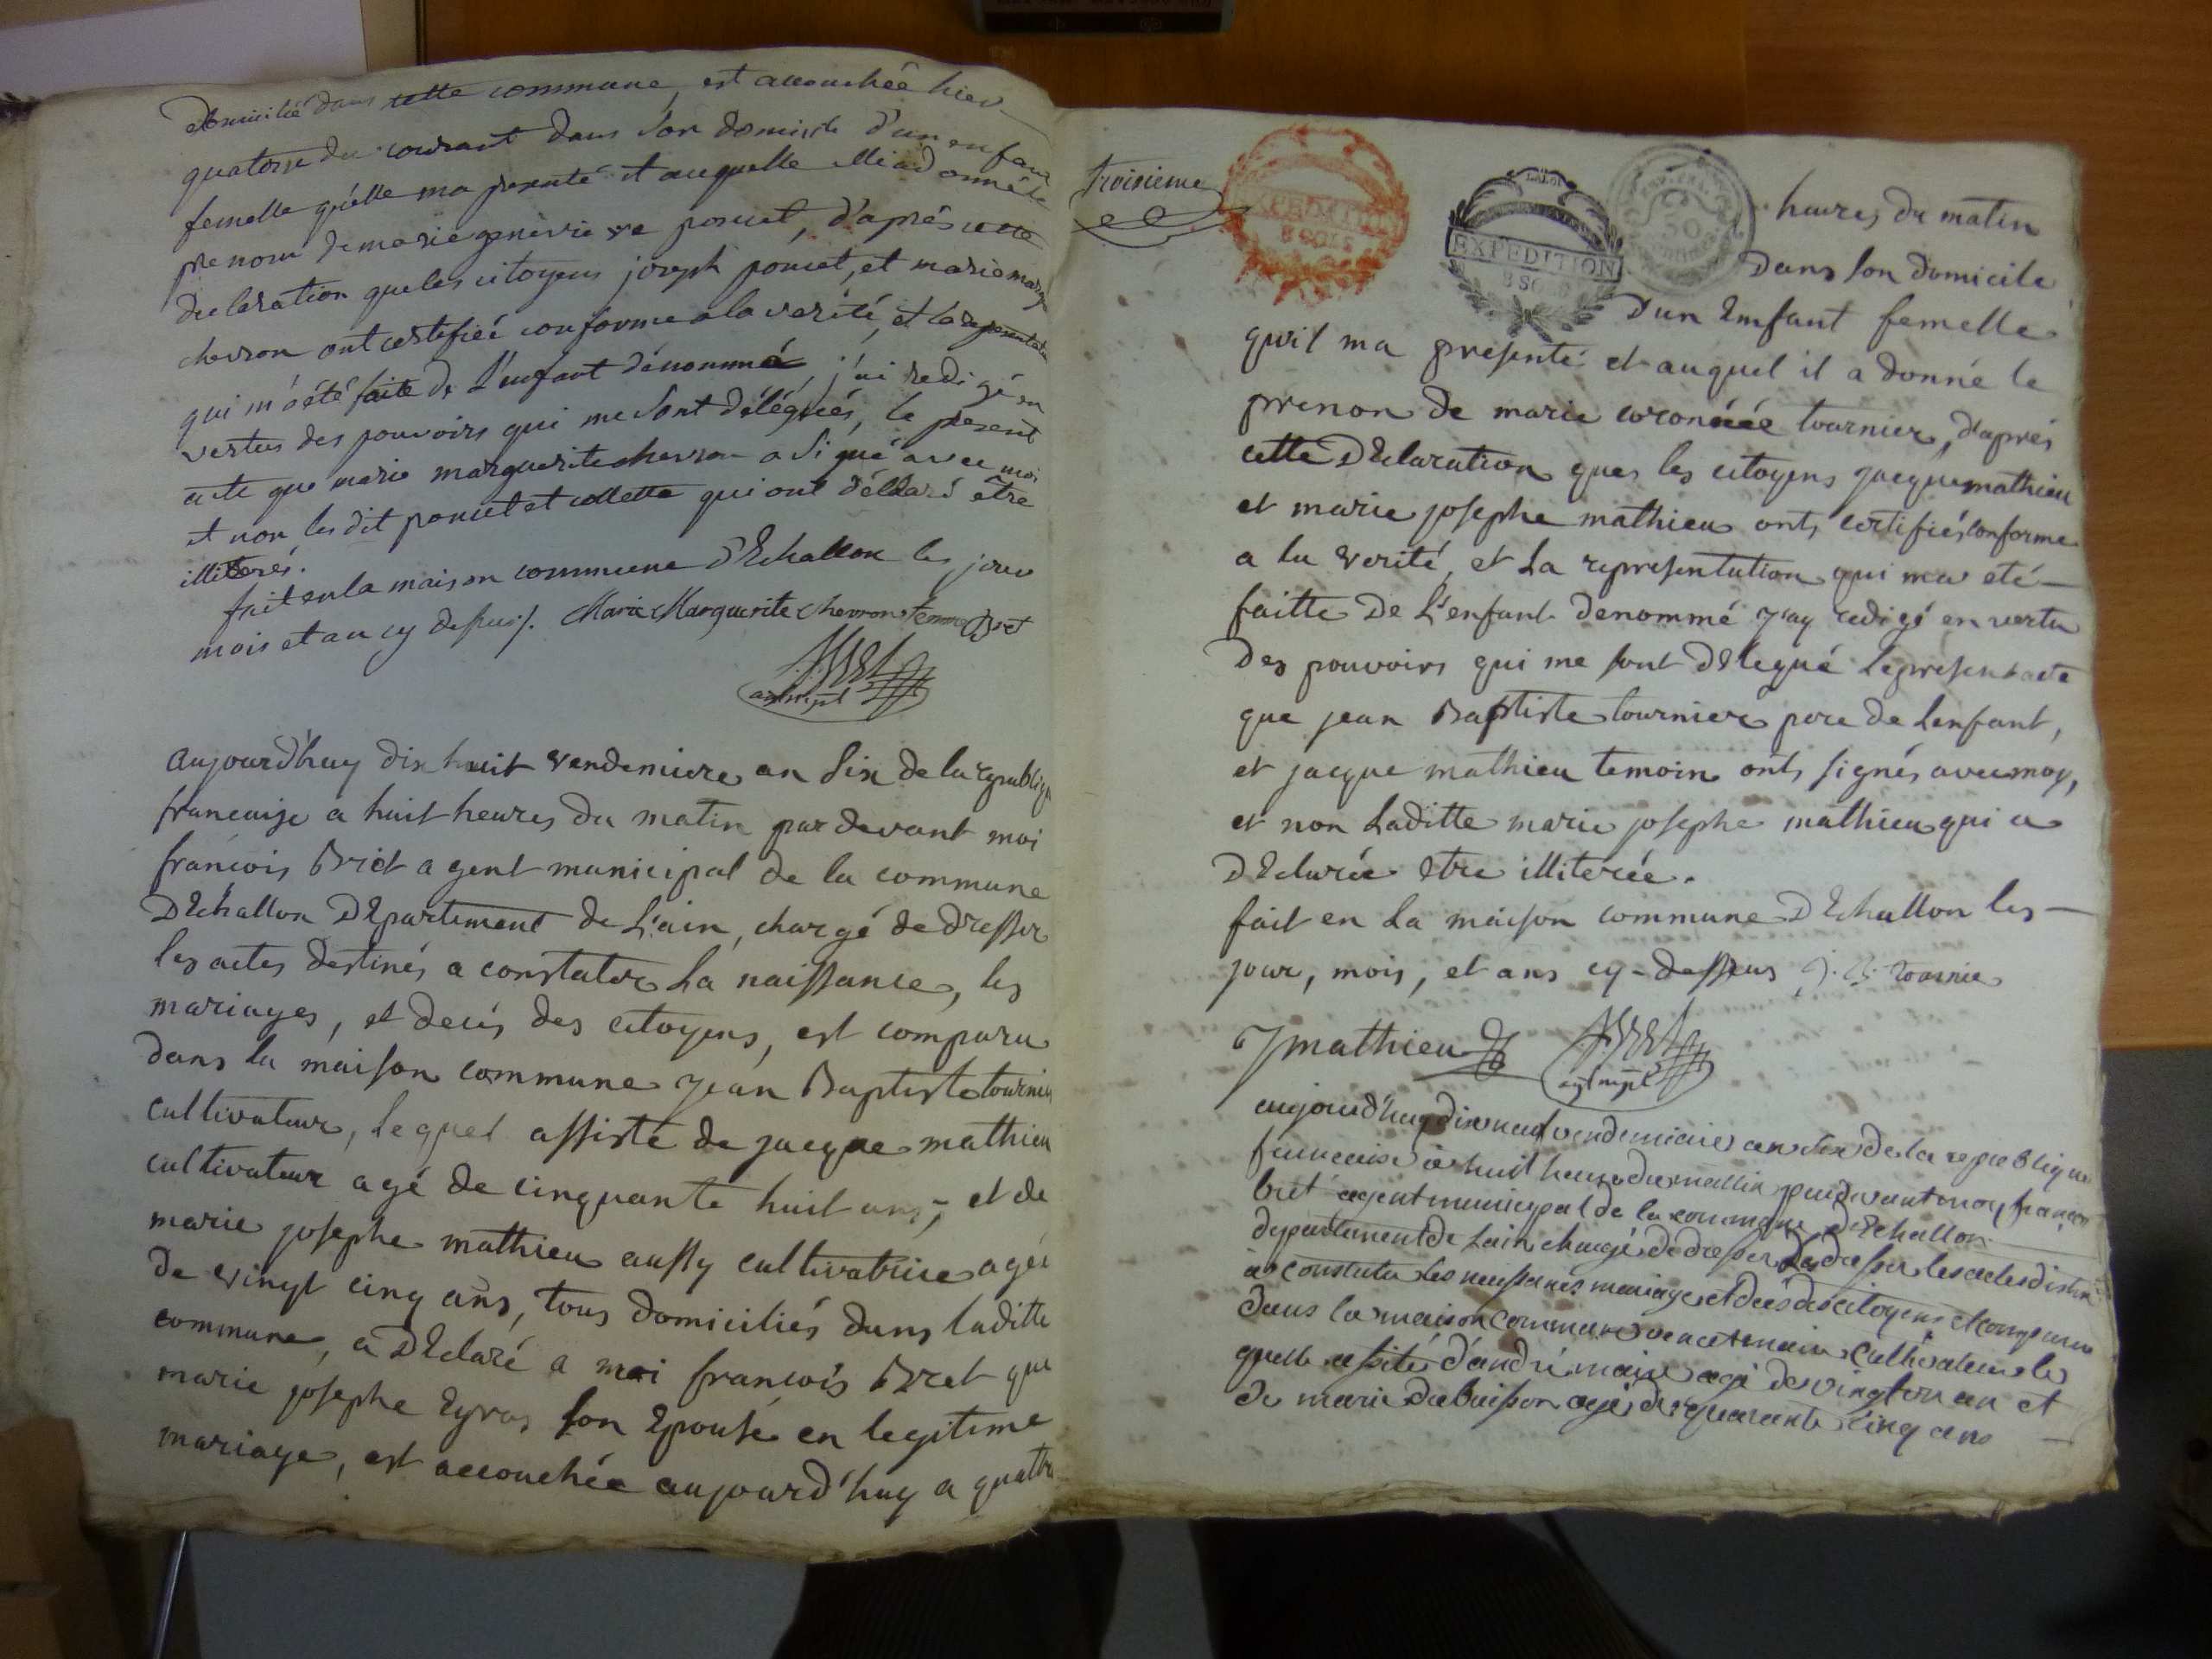 domicilié dans cette commune, est accouchée hier
quatorze du courant dans son domicile d'un enfant
femelle qu'elle ma presenté et auquelle elle a donné le
prenom de marie genevieve poncet, d'après cette
declaration que les citoyens joseph poncet, et marie marg
chevron ont certifieé conforme a la verité, et la representation
qui m'a été faite de L'enfant dénommé, j'ai redigé en
vertus des pouvoirs qui me sont délégués, le present
acte que marie marguerite chevron a signé avec moi
et non les dit poncet et collette qui ont déclaré être
illiterés.
fait en la maison commune d'Echallon les jour
mois et an cy dessus. Marie Marguerite chevron femme Bret
F. Bret
agt mpl
aujourd'huy dix huit vendemiere an six de la republique
francaise a huit heures du matin par devant moi
francois Bret agent municipal de la commune
DEchallon DEpartement de L'ain, chargé de dresser
les actes destinés a constater La naissance, les
mariages, et decès des citoyens, est comparu
dans la maison commune jean Baptiste tournier
cultivateur, lequel assisté de jacque mathieu
cultivateur agé de cinquante huit ans, et de
marie josephe mathieu aussy cultivatrice agée
de vingt cinq ans, tous domiciliés dans laditte
commune, a DEclaré a moi francois Bret que
marie josephe Eyras son Epouse en legitime
mariage, est accouchée aujourd'huy a quattre
troisieme
EXPEDITION
8 SOLS
LA LOI
EXPEDITION
8 SOLS
50
heures du matin
Dans son domicile
D'un Emfant femelle
qu'il ma presenté et auquel il a donné le
prenon de marie coronnée tournier, d'aprés
cette DEclaration ques les citoyens jacque mathieu
et marie josephe mathieu onts certifiés conforme
a la verité, et La representation qui ma eté
faitte De L'enfant denommé j'ay redigé en vertu
Des pouvoirs qui me sont DElegué le present acte
que jean Baptiste tournier pere de Lenfant,
et jacque mathieu temoin onts signés avec moy,
et non Laditte marie josephe mathieu qui a
DEclarée Etre illiterée.
fait en La maison commune DEchallon les
jour, mois, et ans cy-dessus J. B. Tournie
J mathieu F. Bret
agt mpl
aujourd'huy dix neuf vendemiaire an six de la republique
francaise a huit heure du matin par devant moy francois
bret agent municypal de la commune d'Echallon
departement de Lain chargé de dresser de dresser les actes destin
a constater les naissances mariage et decés des citoyens est comparu
dans la maison commune maire cultivateur le
quelle assité d'andré maire agé de vingt un an et
de marie dubuisson agé de quarante cinq ans